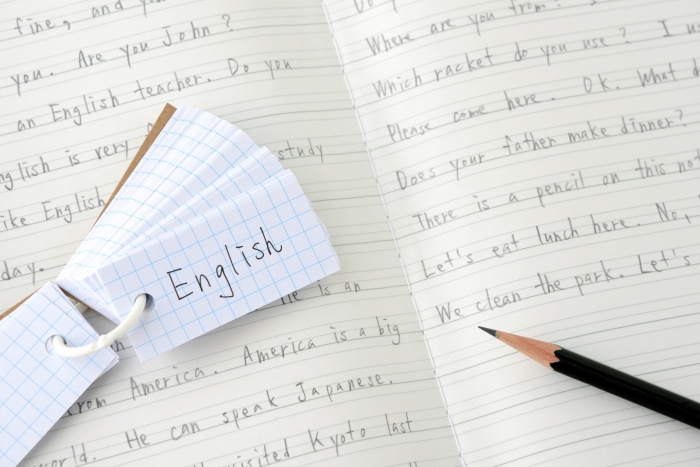 fine, and you
you. Are you John?
an English teacher. Do you
English is very
study
like English
day.
He is an
from America. America is a big
world. He can speak Japanese.
visited Kyoto last
English
Where are you from?
Which racket do you use? I
Please come here. OK. What
Does your father make dinner?
There is a pencil on this
Let's eat lunch here. No,
We clean the park. Let's